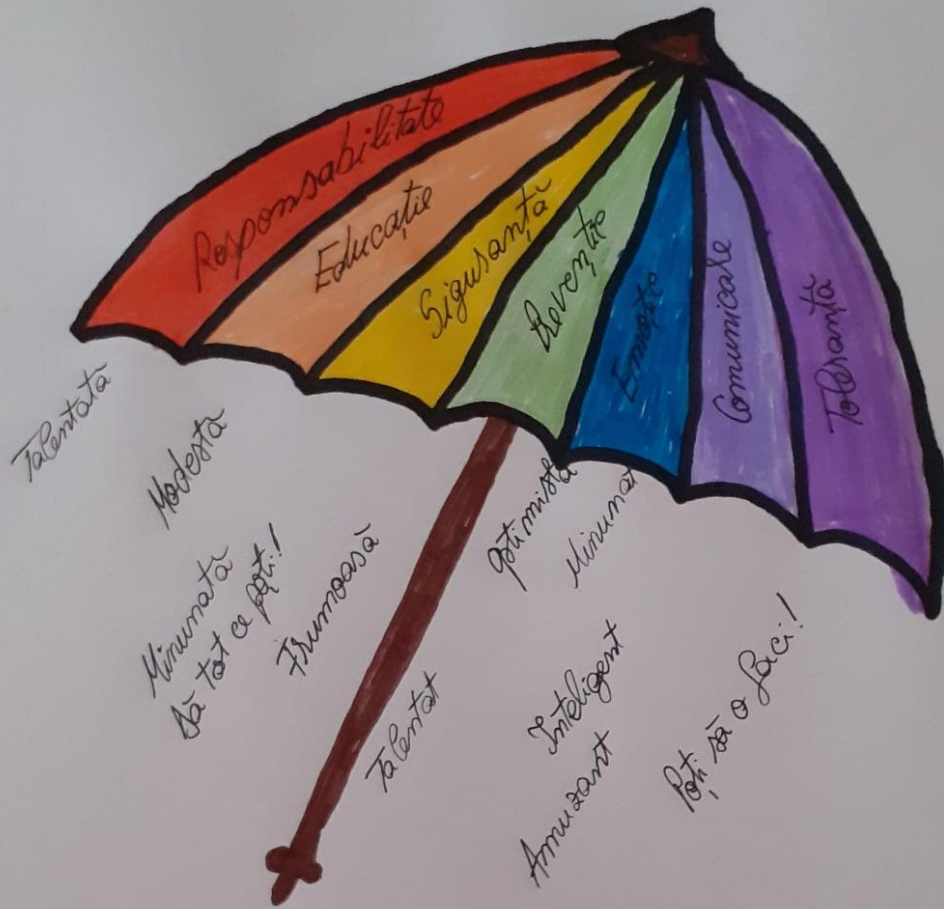 Responsabilitate
Educație
Siguranță
Prevenție
Empatie
Comunicare
Toleranță
Talentată
Modestă
Minunată
Dă tot ce poți!
Frumoasă
Talentat
Optimistă
Minunat
Inteligent
Amuzant
Poți să o faci!